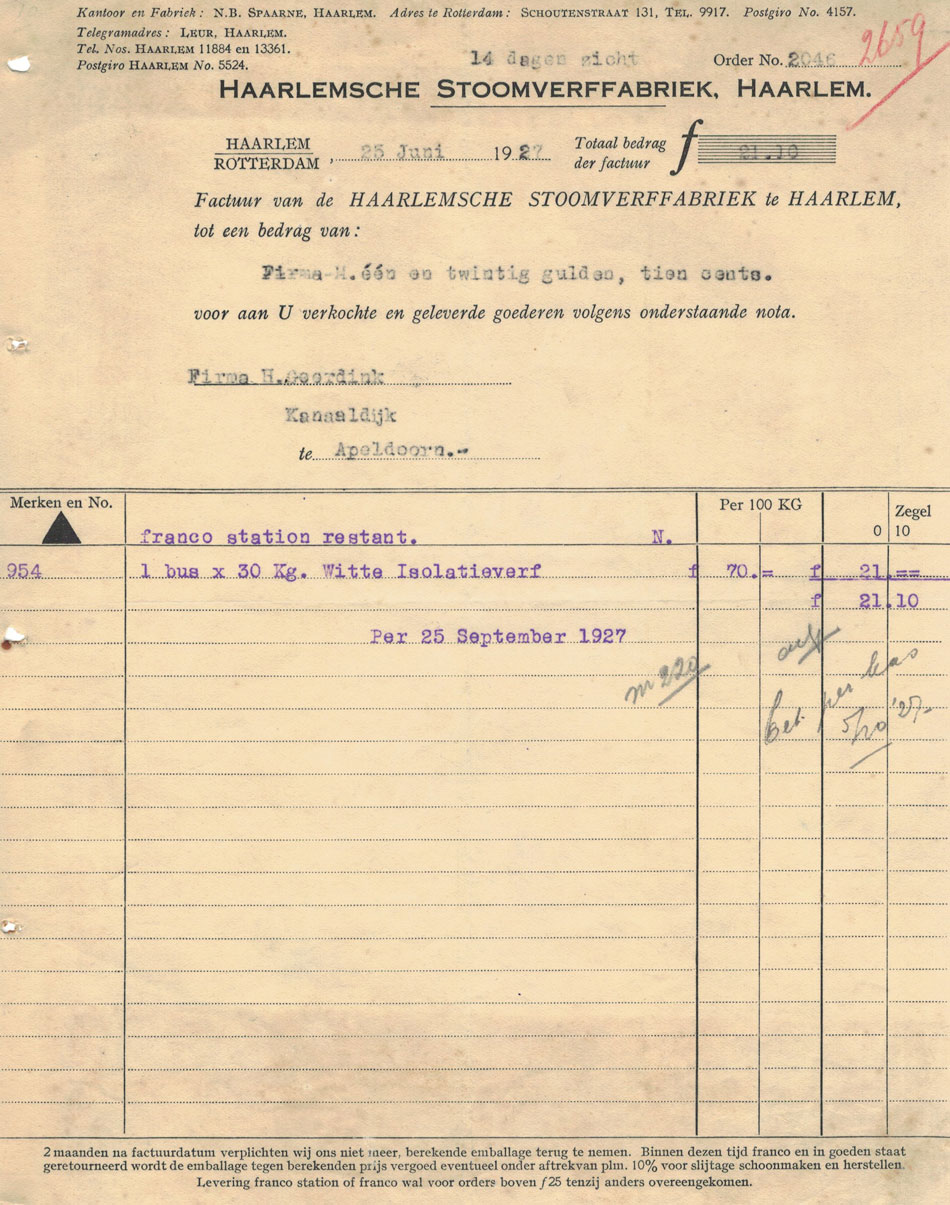 Kantoor en Fabriek: N.B. SPAARNE, HAARLEM. Adres te Rotterdam: SCHOUTENSTRAAT 131, TEL. 9917. Postgiro No. 4157.
Telegramadres: LEUR, HAARLEM.
Tel. Nos. HAARLEM 11884 en 13361.
Postgiro HAARLEM No. 5524.
14 dagen zicht Order No. 2046 2659
HAARLEMSCHE STOOMVERFFABRIEK, HAARLEM.
HAARLEM
ROTTERDAM, 25 Juni 1927 Totaal bedrag der factuur f 21.10
Factuur van de HAARLEMSCHE STOOMVERFFABRIEK te HAARLEM,
tot een bedrag van:
Firma M.één en twintig gulden, tien cents.
voor aan U verkochte en geleverde goederen volgens onderstaande nota.
Firma H.Geerdink
Kanaaldijk
te Apeldoorn.-
Merken en No. Per 100 KG Zegel
franco station restant. N. 0 10
954 1 bus x 30 Kg. Witte Isolatieverf f 70.= f 21.==
f 21.10
Per 25 September 1927
nr 220
bet. per kas
5/10 '27-
2 maanden na factuurdatum verplichten wij ons niet meer, berekende emballage terug te nemen. Binnen dezen tijd franco en in goeden staat
geretourneerd wordt de emballage tegen berekenden prijs vergoed eventueel onder aftrek van plm. 10% voor slijtage schoonmaken en herstellen.
Levering franco station of franco wal voor orders boven f 25 tenzij anders overeengekomen.